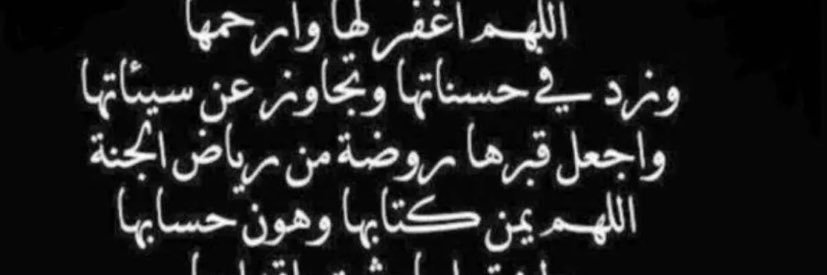 اللهم اغفر لها وارحمها
وزد في حسناتها وتجاوز عن سيئاتها
واجعل قبرها روضة من رياض الجنة
اللهم يمن كتابها وهون حسابها